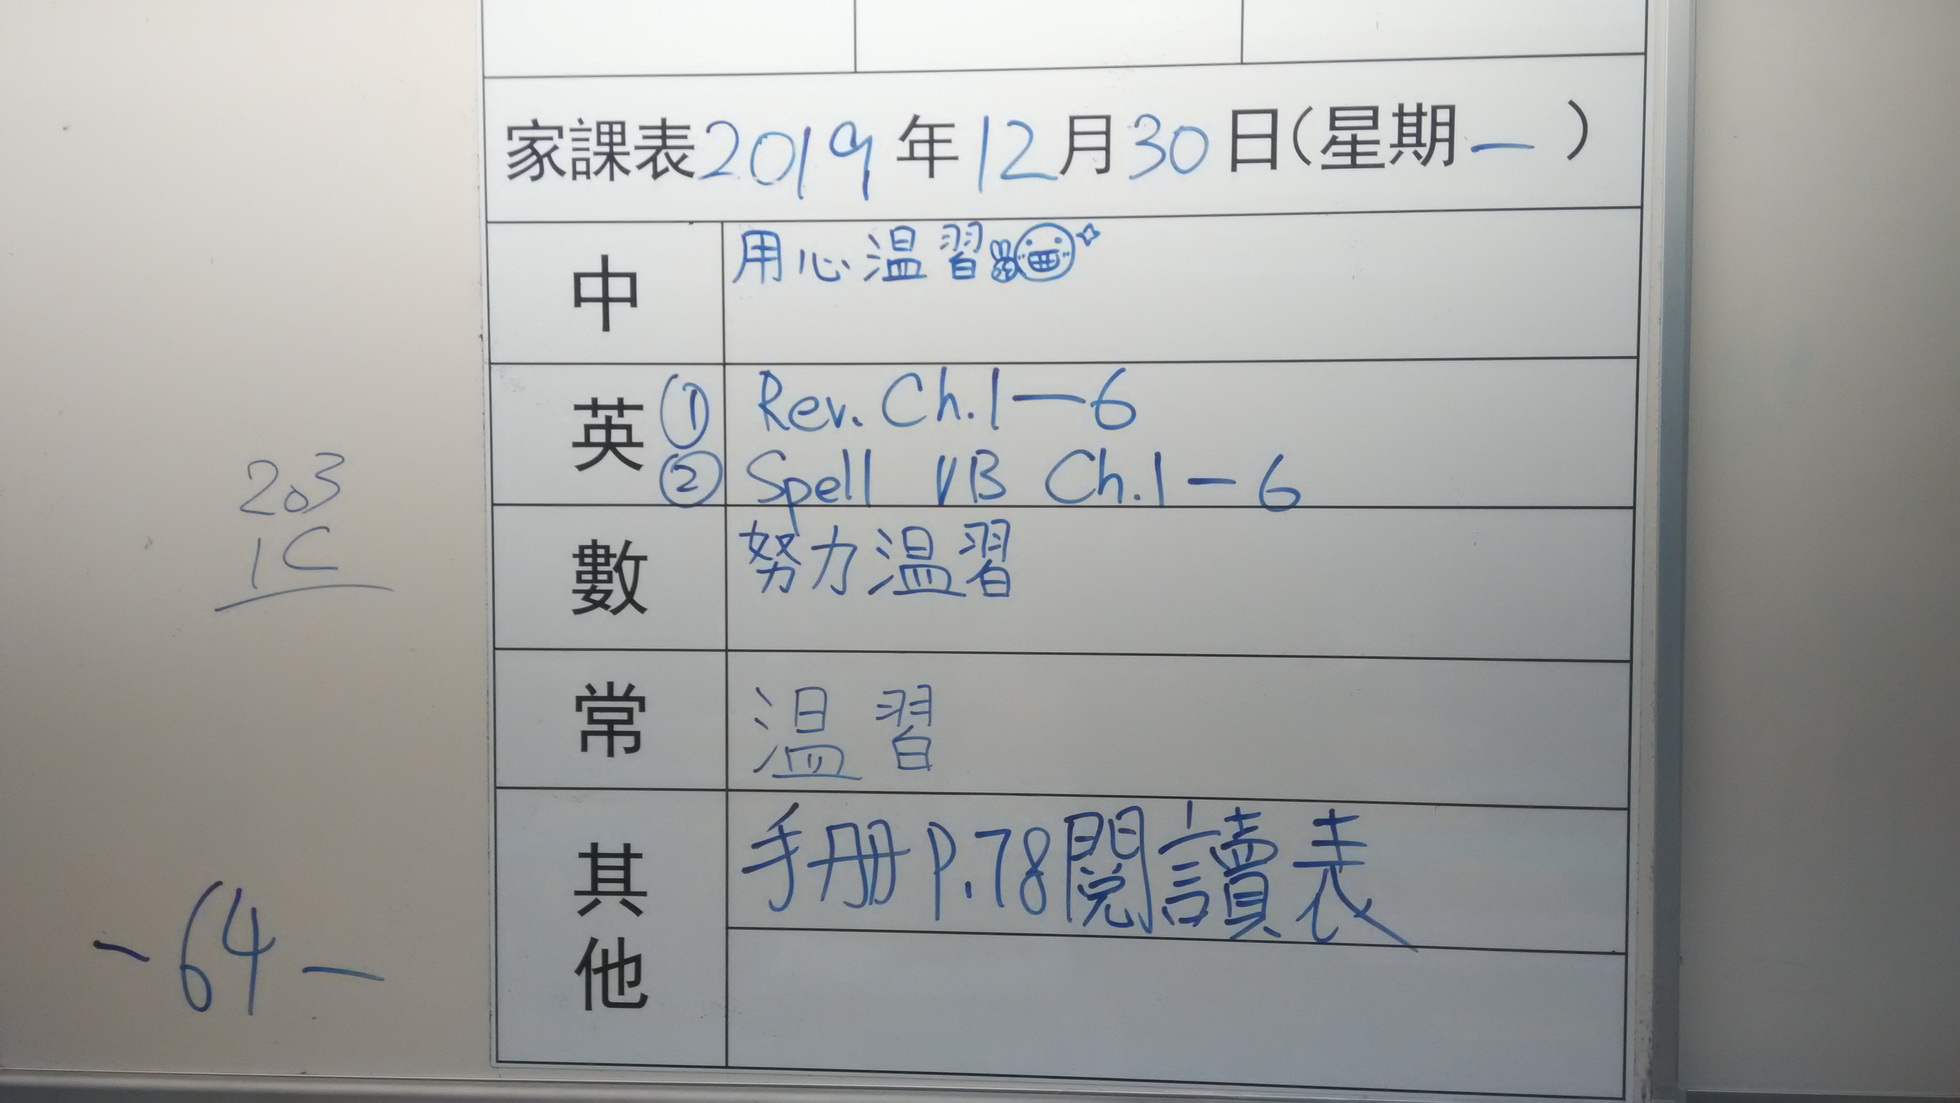 家課表2019年12月30日(星期一)
中 用心溫習
英 ① Rev. Ch.1—6
② Spell VB Ch.1—6
數 努力溫習
常 溫習
其他 手册 P.78 閱讀表
203
1C
-64-